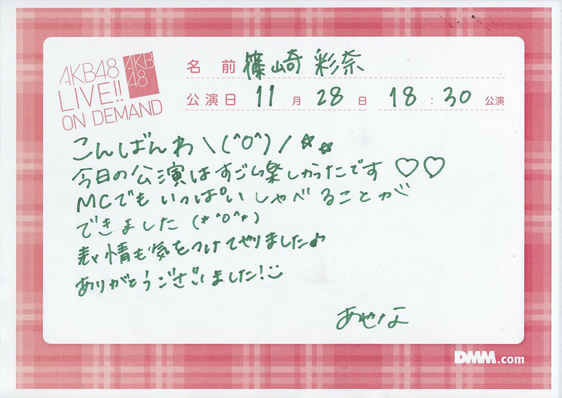 AKB48
LIVE!!
ON DEMAND
AKB
48
名前 篠崎 彩奈
公演日 11月28日 18:30公演
こんばんわ\(^o^)/☆☆
今日の公演はすごく楽しかったです♡♡
MCでもいっぱいしゃべることが
できました(*^o^*)
表情も気をつけてやりました♪
ありがとうございました!
あやな
DMM.com